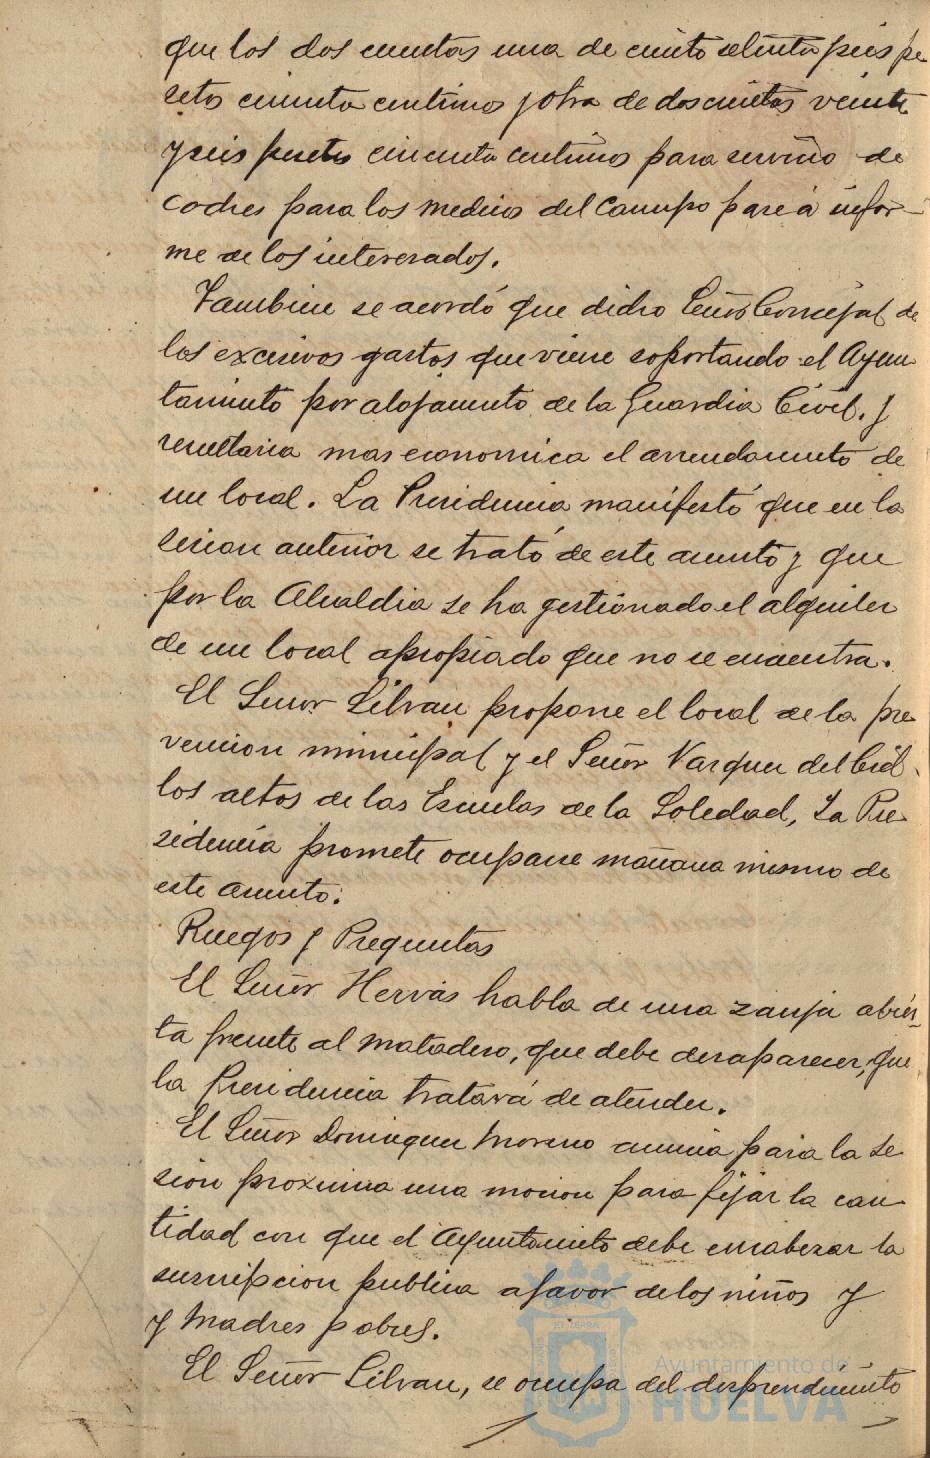 que los dos cuentas una de ciento setenta y seis pe
setas cincuenta centimos y otra de doscientas veinte
y seis pesetas cincuenta centimos para servicio de
coches para los medicos del Campo pase á infor-
me de los interesados.
Tambien se acordó que dicho Señor Concejal de
los excesivos gastos que viene soportando el Ayun
tamiento por alojamiento de la Guardia Civil. y
resultaria mas economica el arrendamiento de
un local. La Presidencia manifestó que en la
sesion anterior se trató de este asunto y que
por la Alcaldia se ha gestionado el alquiler
de un local apropiado que no se encuentra.
El Señor Silvan propone el local de la pre
vencion municipal y el Señor Vazquez del Cid
los altos de las Escuelas de la Soledad, La Pre
sidencia promete ocuparse mañana mismo de
este asunto.
Ruegos y Preguntas
El Señor Hervás habla de una zanja abier-
ta frente al matadero, que debe desaparecer, que
la Presidencia tratará de atender.
El Señor Dominguez Moreno anuncia para la se
sion proxima una mocion para fijar la can
tidad con que el Ayuntamiento debe encabezar la
suscripcion publica a favor de los niños y
y Madres pobres.
El Señor Silvan, se ocupa del desprendimiento
Ayuntamiento de
HUELVA